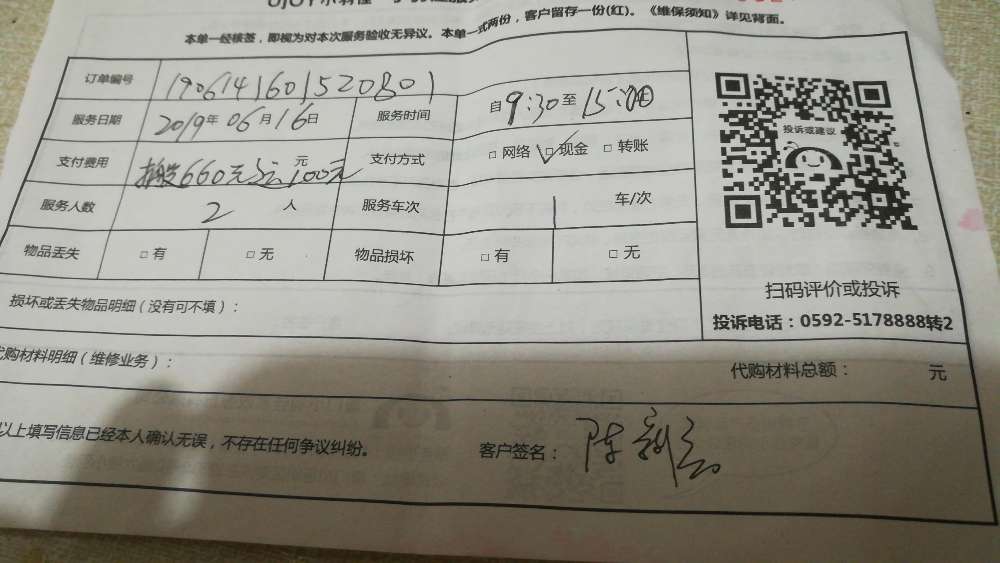 本单一经核签，即视为对本次服务验收无异议。本单一式两份，客户留存一份(红)。《维保须知》详见背面。
订单编号 1906141601520801
服务日期 2019年06月16日 服务时间 自9:30至15:00
支付费用 搬660元 100元 元 支付方式 □网络 ☑现金 □转账
服务人数 2 人 服务车次 1 车/次
物品丢失 □有 □无 物品损坏 □有 □无
损坏或丢失物品明细（没有可不填）：
投诉或建议
扫码评价或投诉
投诉电话：0592-5178888转2
代购材料明细（维修业务）：
代购材料总额： 元
以上填写信息已经本人确认无误，不存在任何争议纠纷。
客户签名：陈